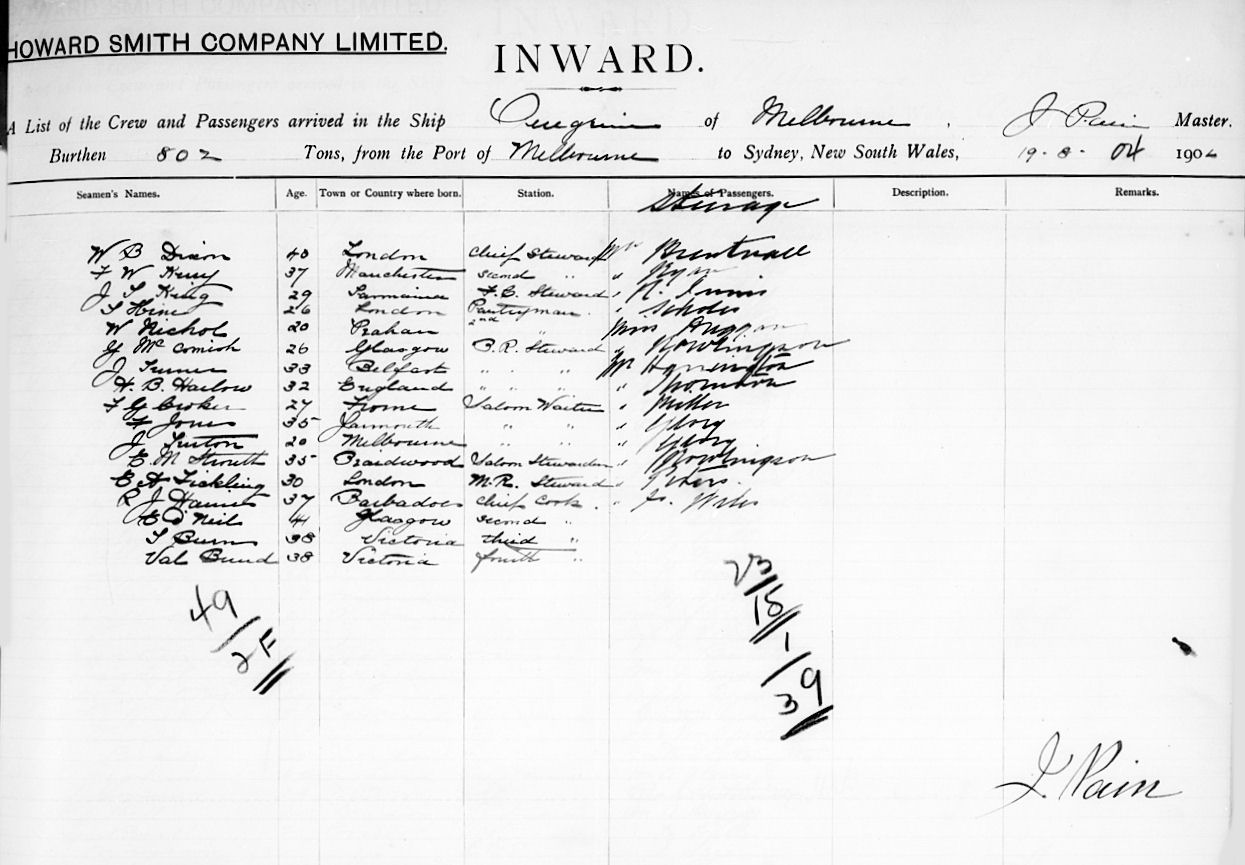 HOWARD SMITH COMPANY LIMITED.
INWARD.
A List of the Crew and Passengers arrived in the Ship Peregrine of Melbourne, J Pain Master.
Burthen 802 Tons, from the Port of Melbourne to Sydney, New South Wales, 19-8-04 190
Seamen's Names. Age. Town or Country where born. Station. Names of Passengers. Description. Remarks.
Steerage
W B Dixon 40 London Chief Steward Mr Brentnall
F W 37 Manchester second " " Ryan
J T King 29 F.C. Steward "
T Hine 26 London Pantryman " Scholes
W Nichol 20 Prahan 2nd " Miss Duggan
G McComish 26 Glasgow B.R. Steward " Rowlingson
J Turner 33 Belfast " " " Mr
H. B. Harlow 32 England " " " " Thornton
F G Croker 27 Frome Saloon Waiter " Miller
F Jones 35 Yarmouth " " "
J 20 Melbourne " " "
E. M 35 Braidwood Saloon "
E A Tickling 30 London M.R. Steward "
R J 37 Barbadoes Chief Cook "
E O'Neil 41 Glasgow second "
T Burns 38 Victoria third "
Val Bund 38 Victoria fourth "
49/2F
23
15
1
39
J. Pain